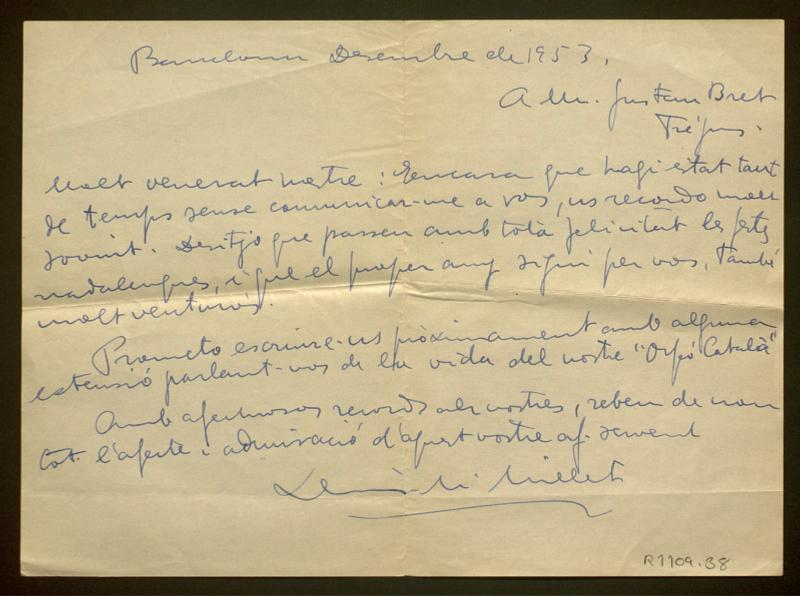 Barcelona Desembre de 1953.
A M. Gustau Bret
Fréjus.
Molt venerat mestre: Encara que hagi estat tant
de temps sense comunicar-me a vos, us recordo molt
sovint. Desitjo que passeu amb tota felicitat les festes
nadalenques, i que el proper any sigui per vos, també
molt venturós.
Prometo escriure-us pròximament amb alguna
extensió parlant-vos de la vida del nostre "Orfeó Català"
Amb afectuosos records als vostres, rebeu de nou
tot l'afecte i admiració d'aquest vostre af. servent
Lluís Mª Millet
R1109.38